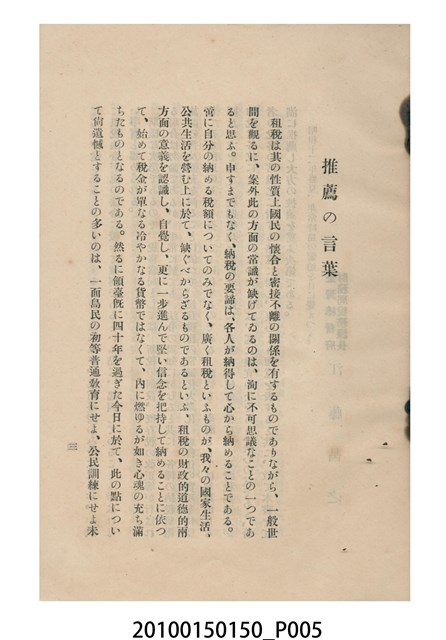 推薦の言葉
租税は其の性質上國民の懷合と密接不離の關係を有するものでありながら、一般世
間を觀るに、案外此の方面の常識が缺けてゐるのは、洵に不可思議なことの一つであ
ると思ふ。申すまでもなく、納税の要諦は、各人が納得して心から納めることである。
啻に自分の納める税額についてのみでなく、廣く租税といふものが、我々の國家生活、
公共生活を營む上に於て、缺ぐべからざるものであるといふ、租税の財政的道德的兩
方面の意義を認識し、自覺し、更に一步進んで堅い信念を把持して納めることに依つ
て、始めて税金が單なる冷やかなる貨幣ではなくて、內に燃ゆるが如き心魂の充ち滿
ちたものとなるのである。然るに領臺旣に四十年を過ぎた今日に於て、此の點につい
て尙遺憾とすることの多いのは、一面島民の初等普通敎育にせよ、公民訓練にせよ未
三
20100150150_P005